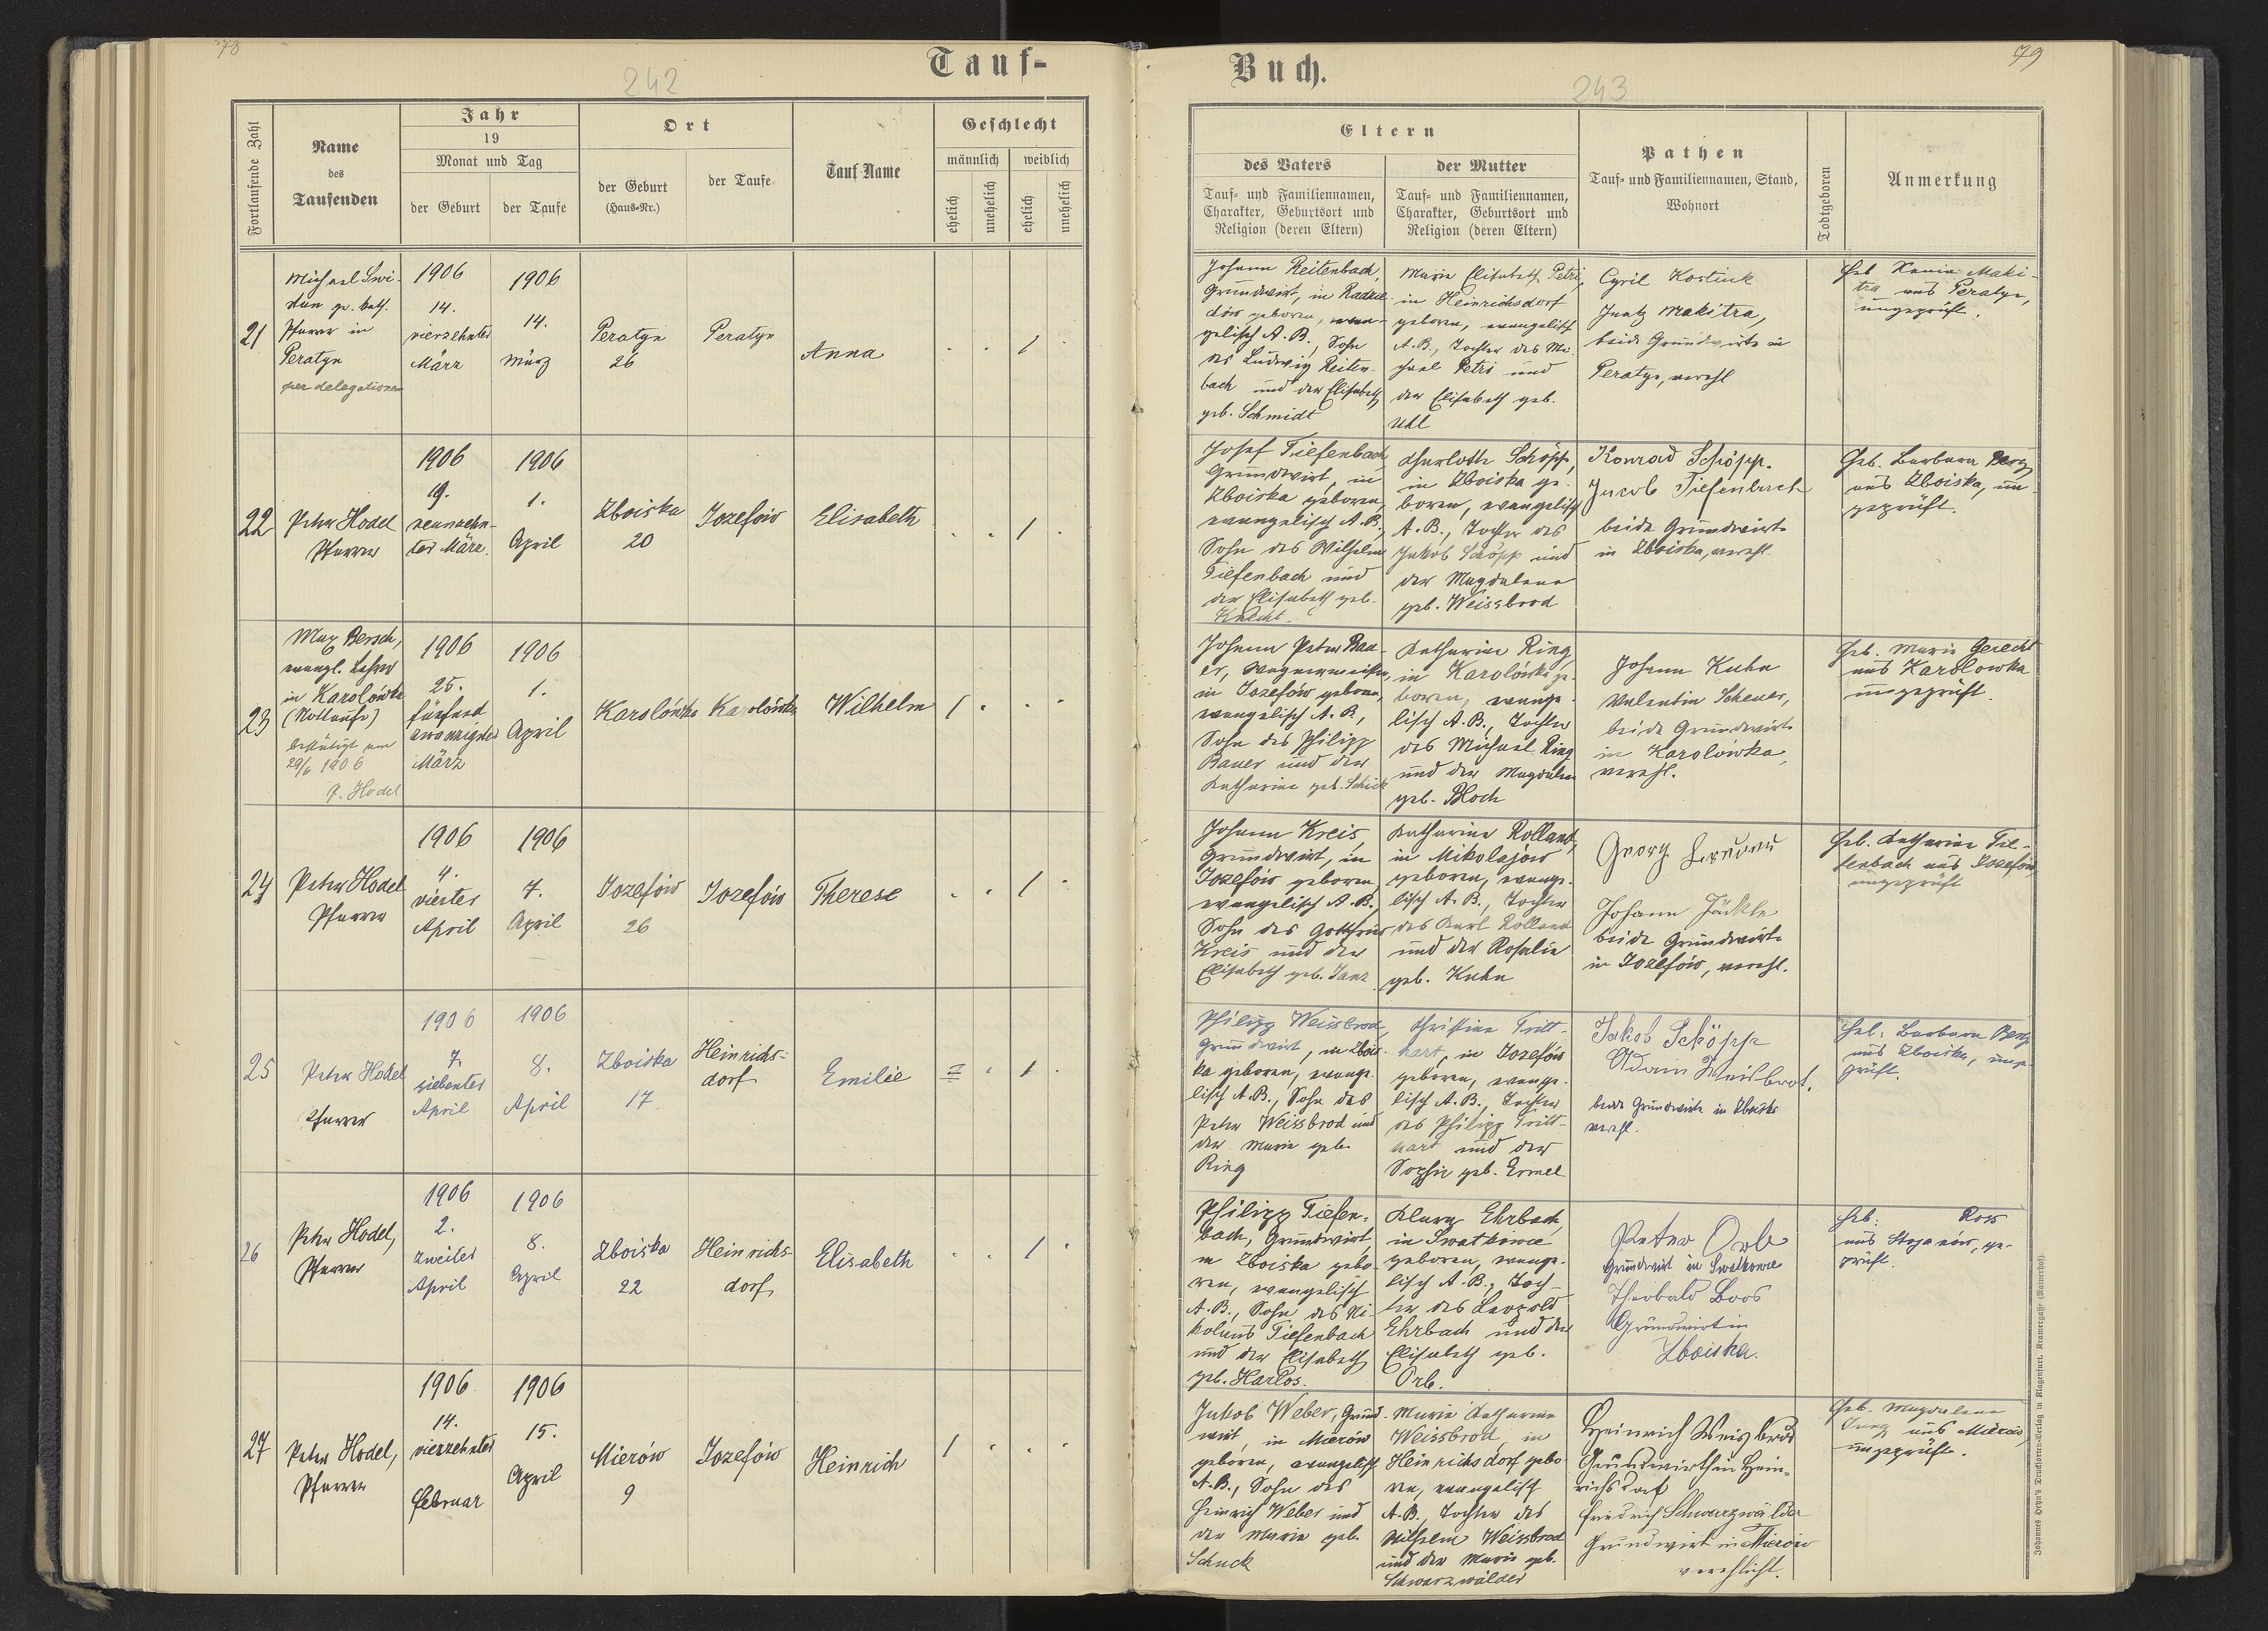 78
Tauf-
242
Fortlaufende Zahl
Name
des
Taufenden
Jahr
19
Monat und Tag
der Geburt
der Taufe
Ort
der Geburt
(Haus-Nr.)
der Taufe
Tauf-Name
Geschlecht
männlich
weiblich
ehelich
unehelich
ehelich
unehelich
21
Michael Swi-
gr. kath.
Pfarrer in
Peratyn
per delegationem
1906
14.
vierzehnter
März
1906
14.
März
Peratyn
26
Peratyn
Anna
22
Peter Hodel
Pfarrer
1906
19.
neunzehn-
ter März.
1906
1.
April
Zboiska
20
Jozefów
Elisabeth
23
Max Bersch,
evangl. Lehrer
in Karolówka
(Nottaufe)
bestätigt am
29/6 1906
P. Hodel
1906
25.
fünfund
zwanzigster
März
1906
1.
April
Karolówka
Karolówka
Wilhelm
24
Peter Hodel
Pfarrer
1906
4.
vierter
April
1906
7.
April
Jozefów
26
Jozefów
Therese
25
Peter Hodel
Pfarrer
1906
7.
siebenter
April
1906
8.
April
Zboiska
17
Heinrichs-
dorf
Emilie
26
Peter Hodel,
Pfarrer
1906
2.
zweiter
April
1906
8.
April
Zboiska
22
Heinrichs-
dorf
Elisabeth
27
Peter Hodel,
Pfarrer
1906
14.
vierzehnter
Februar
1906
15.
April
Mierów
9
Jozefów
Heinrich
79
Buch.
243
Eltern
des Vaters
Tauf- und Familiennamen,
Charakter, Geburtsort und
Religion (deren Eltern)
der Mutter
Tauf- und Familiennamen,
Charakter, Geburtsort und
Religion (deren Eltern)
Pathen
Tauf- und Familiennamen, Stand,
Wohnort
Todtgeboren
Anmerkung
Johann Reitenbach,
Grundwirt, in Radzie
chów geboren, evan-
gelisch A. B., Sohn
des Ludwig Reiten-
bach und der Elisabeth
geb. Schmidt
Marie Elisabeth Petri,
in Heinrichsdorf
geboren, evangelisch
A. B., Tochter des Mi-
chael Petri und
der Elisabeth geb.
Uhl
Cyril Kostiuk
Ignatz Makitra,
beide Grundwirte in
Peratyn, verehl
Heb Xenia Maki-
tra aus Peratyn,
ungeprüft.
Josef Tiefenbach,
Grundwirt, in
Zboiska geboren,
evangelisch A. B.,
Sohn des Wilhelm
Tiefenbach und
der Elisabeth geb.
Knecht.
Charlotte Schöpp,
in Zboiska ge-
boren, evangelisch
A. B., Tochter des
Jakob Schöpp und
der Magdalena
geb. Weissbrod
Konrad Schöpp.
Jacob Tiefenbach
beide Grundwirte
in Zboiska, verehl.
Heb. Barbara Berg
aus Zboiska, un-
geprüft.
Johann Peter Bau-
er, Wagnermeister,
in Jozefów geboren,
evangelisch A. B.,
Sohn des Philipp
Bauer und der
Katharina geb. Schick
Katharina Ring,
in Karolówka ge-
boren, evange-
lisch A. B., Tochter
des Michael Ring
und der Magdalena
geb. Bloch
Johann Kuhn
Valentin Scheuer,
beide Grundwirte
in Karolówka,
verehl.
Heb. Maria Gerecht
aus Karolowka
ungeprüft.
Johann Kreis,
Grundwirt, in
Jozefów geboren,
evangelisch A. B.,
Sohn des Gottfried
Kreis und der
Elisabeth geb. Janz
Katharina Rolland,
in Mikolajów
geboren, evange-
lisch A. B., Tochter
des Karl Rolland
und der Rosalia
geb. Kuhn
Georg
Johann Jäckle
beide Grundwirte
in Jozefów, verehl.
Heb. Katharina Tie-
fenbach aus Jozefów
ungeprüft
Philipp Weissbrod,
Grundwirt, in Zbois-
ka geboren, evange-
lisch A. B., Sohn des
Peter Weissbrod und
der Marie geb.
Ring
Christina Tritt-
hart, in Jozefów
geboren, evange-
lisch A. B., Tochter
des Philipp Tritt-
hart und der
Sophie geb. Ermel
Jakob Schöpp
Adam Weisbrot.
beide Grundwirte in Zboiska
verehl.
Heb. Barbara Berg
aus Zboiska, unge-
prüft.
Philipp Tiefen-
bach, Grundwirt,
in Zboiska gebo-
ren, evangelisch
A. B., Sohn des Ni-
kolaus Tiefenbach
und der Elisabeth
geb. Harlos.
Klara Ehrbach,
in Swatkowce
geboren, evange-
lisch A. B., Toch-
ter des Leopold
Ehrbach und der
Elisabeth geb.
Orb.
Peter Orb
Grundwirt in Swatkowce
Theobald Boos
Grundwirt in
Zboiska.
Heb. Ross
aus Stojanow, ge-
prüft.
Jakob Weber, Grund-
wirt, in Mierów
geboren, evangelisch
A. B., Sohn des
Heinrich Weber und
der Marie geb.
Schuck
Marie Katharina
Weissbrod, in
Heinrichsdorf gebo-
ren, evangelisch
A. B., Tochter des
Wilhelm Weissbrod
und der Marie geb.
Schwarzwälder
Heinrich Weisbrod
Grundwirth in Hein-
richsdorf
Friedrich Schwarzwälder
Grundwirt in Mierów
verehlicht.
Heb. Magdalena
Jung aus Mierów,
ungeprüft.
Johannes Heyn's Drucksorten-Verlag in Klagenfurt, Kramergasse (Rainerhof)